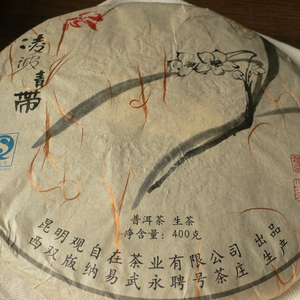 凌波青带
普洱茶 生茶
净含量：400克
昆明观自在茶业有限公司 出品
西双版纳易武永聘号茶庄 生产